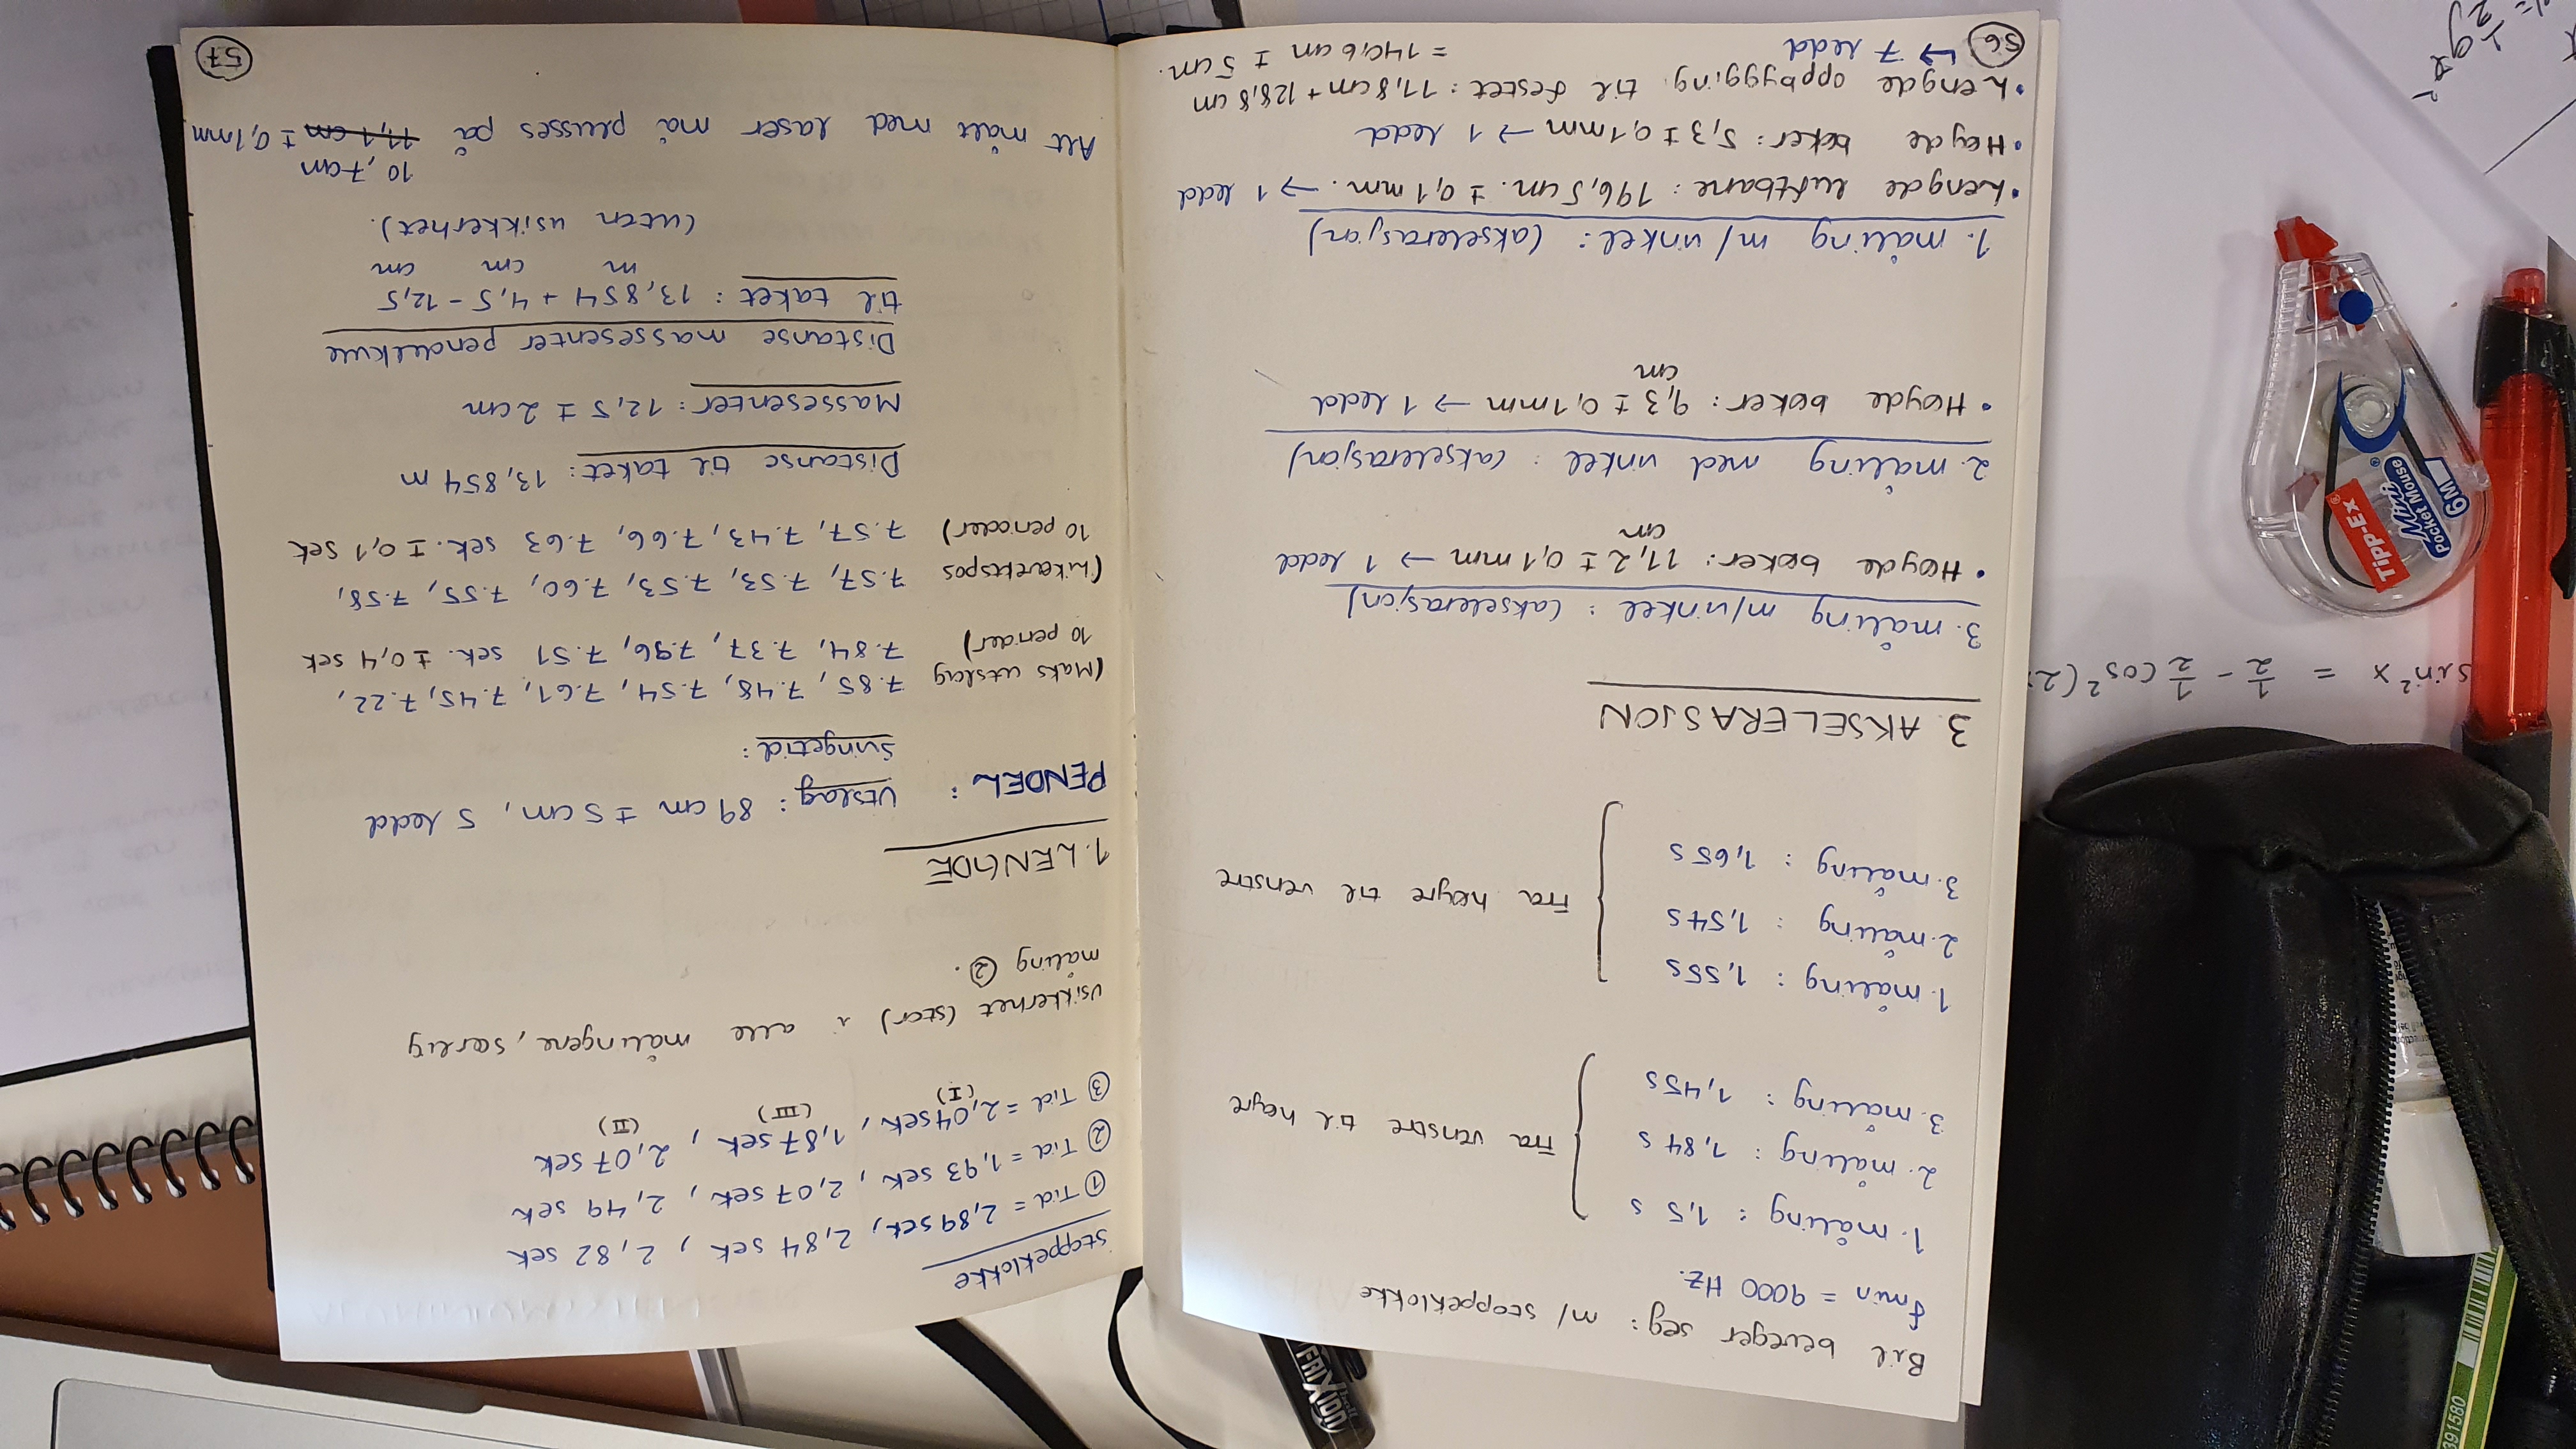 Bil beveger seg: m/ stoppeklokke
fmin = 9000 Hz.
1. måling : 1,5 s
2. måling : 1,84 s
3. måling : 1,45s
Fra venstre til høyre
1. måling : 1,55s
2. måling : 1,54s
3. måling : 1,65s
Fra høyre til venstre
3. AKSELERASJON
3. måling m/vinkel : (akselerasjon)
• Høyde bøker: 11,2 ± 0,1mm → 1 ledd
cm
2. måling med vinkel : (akselerasjon)
• Høyde bøker : 9,3 ± 0,1mm → 1 ledd
cm
1. måling m/ vinkel: (akselerasjon)
• Lengde luftbane : 196,5cm. ± 0,1mm. → 1 ledd
• Høyde bøker: 5,3 ± 0,1mm → 1 ledd
• Lengde oppbygging til festet : 11,8cm + 128,8 cm
↳ 7 ledd
= 140,6cm ± 5cm.
56
stoppeklokke
① Tid = 2,89sek, 2,84 sek, 2,82 sek
② Tid = 1,93 sek, 2,07sek, 2,49 sek
③ Tid = 2,04sek, 1,87sek, 2,07sek
(I) (III) (II)
usikkerhet (stor) i alle målingene, særlig
måling ②.
1. LENGDE
PENDEL : Utslag : 89cm ± 5cm, 5 ledd
Svingetid :
(Maks utslag 7.85, 7.48, 7.54, 7.61, 7.45, 7.22,
10 perider) 7.84, 7.37, 7.96, 7.51 sek. ± 0,4 sek
(Likevektspos 7.57, 7.53, 7.53, 7.60, 7.55, 7.58,
10 perioder) 7.57, 7.43, 7.66, 7.63 sek. ± 0,1 sek
Distanse til taket : 13,854 m
Massesenter : 12,5 ± 2cm
Distanse massesenter pendelkule
til taket : 13,854 + 4,5 - 12,5
m cm cm
(uten usikkerhet).
10,7cm
Alt målt med laser må plusses på 11,1 cm ± 0,1mm
57
sin² x = 1/2 - 1/2 cos² (2
FRIXION
ball
391580
Tipp-Ex
Mini
Pocket Mouse
6M